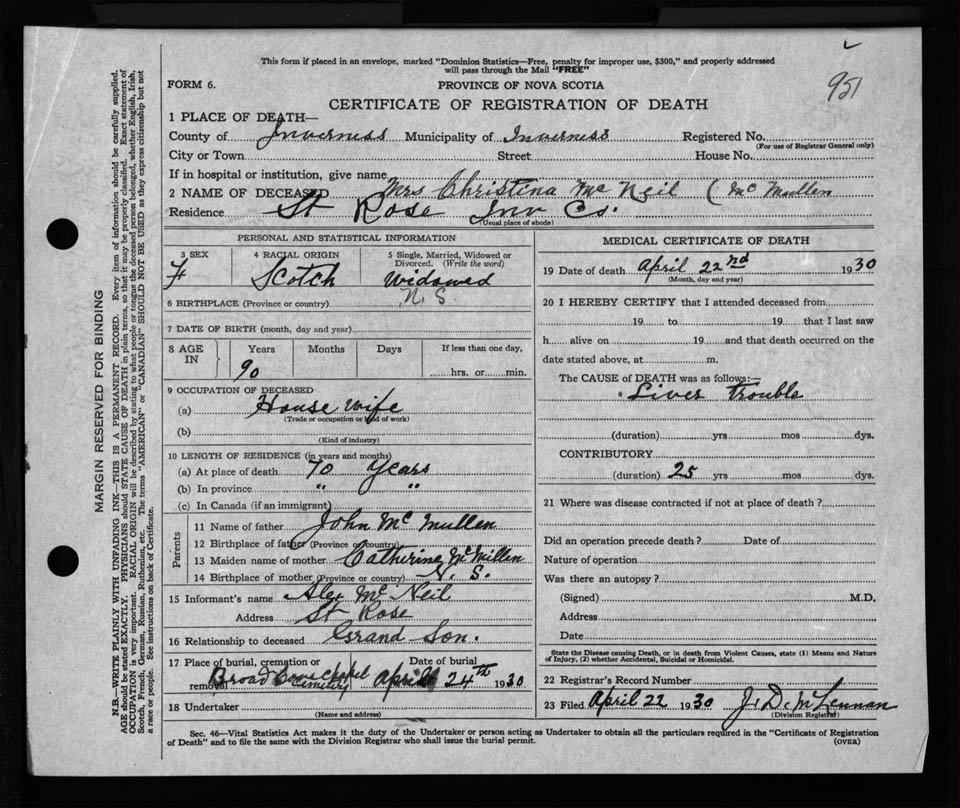 This form if placed in an envelope, marked "Dominion Statistics—Free, penalty for improper use, $300," and properly addressed
will pass through the Mail "FREE"
951
FORM 6.
PROVINCE OF NOVA SCOTIA
CERTIFICATE OF REGISTRATION OF DEATH
1 PLACE OF DEATH—
County of Inverness Municipality of Inverness Registered No.
(For use of Registrar General only)
City or Town Street House No.
If in hospital or institution, give name
2 NAME OF DECEASED Mrs Christina Mc Neil (Mc Mullen
Residence St Rose Inv Co.
(Usual place of abode)
PERSONAL AND STATISTICAL INFORMATION
3 SEX
F
4 RACIAL ORIGIN
Scotch
5 Single, Married, Widowed or
Divorced. (Write the word)
Widowed
6 BIRTHPLACE (Province or country) N. S.
7 DATE OF BIRTH (month, day and year)
8 AGE IN
Years Months Days If less than one day,
90 hrs. or min.
9 OCCUPATION OF DECEASED
(a) House wife
(Trade or occupation or kind of work)
(b)
(Kind of industry)
10 LENGTH OF RESIDENCE (in years and months)
(a) At place of death 70 Years
(b) In province " "
(c) In Canada (if an immigrant)
Parents
11 Name of father John Mc Mullen
12 Birthplace of father (Province or country)
13 Maiden name of mother Catherine McMillen
14 Birthplace of mother (Province or country) N. S.
15 Informant's name Alex Mc Neil
Address St Rose
16 Relationship to deceased Grand Son.
17 Place of burial, cremation or removal Broad Cove Chapel Cemetery
Date of burial April 24th 1930
18 Undertaker
(Name and address)
MEDICAL CERTIFICATE OF DEATH
19 Date of death April 22nd 1930
(Month, day and year)
20 I HEREBY CERTIFY that I attended deceased from
19 to 19 that I last saw
h alive on 19 and that death occurred on the
date stated above, at m.
The CAUSE of DEATH was as follows:—
Liver trouble
(duration) yrs mos dys.
CONTRIBUTORY
(duration) 25 yrs mos dys.
21 Where was disease contracted if not at place of death?
Did an operation precede death? Date of
Nature of operation
Was there an autopsy?
(Signed) M.D.
Address
Date
State the Disease causing Death, or in death from Violent Causes, state (1) Means and Nature
of Injury, (2) whether Accidental, Suicidal or Homicidal.
22 Registrar's Record Number
23 Filed April 22 1930 J. D. McLennan
(Division Registrar)
Sec. 46—Vital Statistics Act makes it the duty of the Undertaker or person acting as Undertaker to obtain all the particulars required in the "Certificate of Registration
of Death" and to file the same with the Division Registrar who shall issue the burial permit.
(OVER)
MARGIN RESERVED FOR BINDING
N.B.—WRITE PLAINLY WITH UNFADING INK—THIS IS A PERMANENT RECORD. Every item of information should be carefully supplied.
AGE should be stated EXACTLY. PHYSICIANS should STATE CAUSE OF DEATH in plain terms, so that it may be properly classified. Exact statement of
OCCUPATION is very important. RACIAL ORIGIN will be described by stating to what people or tongue the deceased person belonged, whether English, Irish,
Scotch, French, German, Russian, Ruthenian, etc. The terms "AMERICAN" or "CANADIAN" SHOULD NOT BE USED as they express citizenship but not
a race or people. See instructions on back of Certificate.